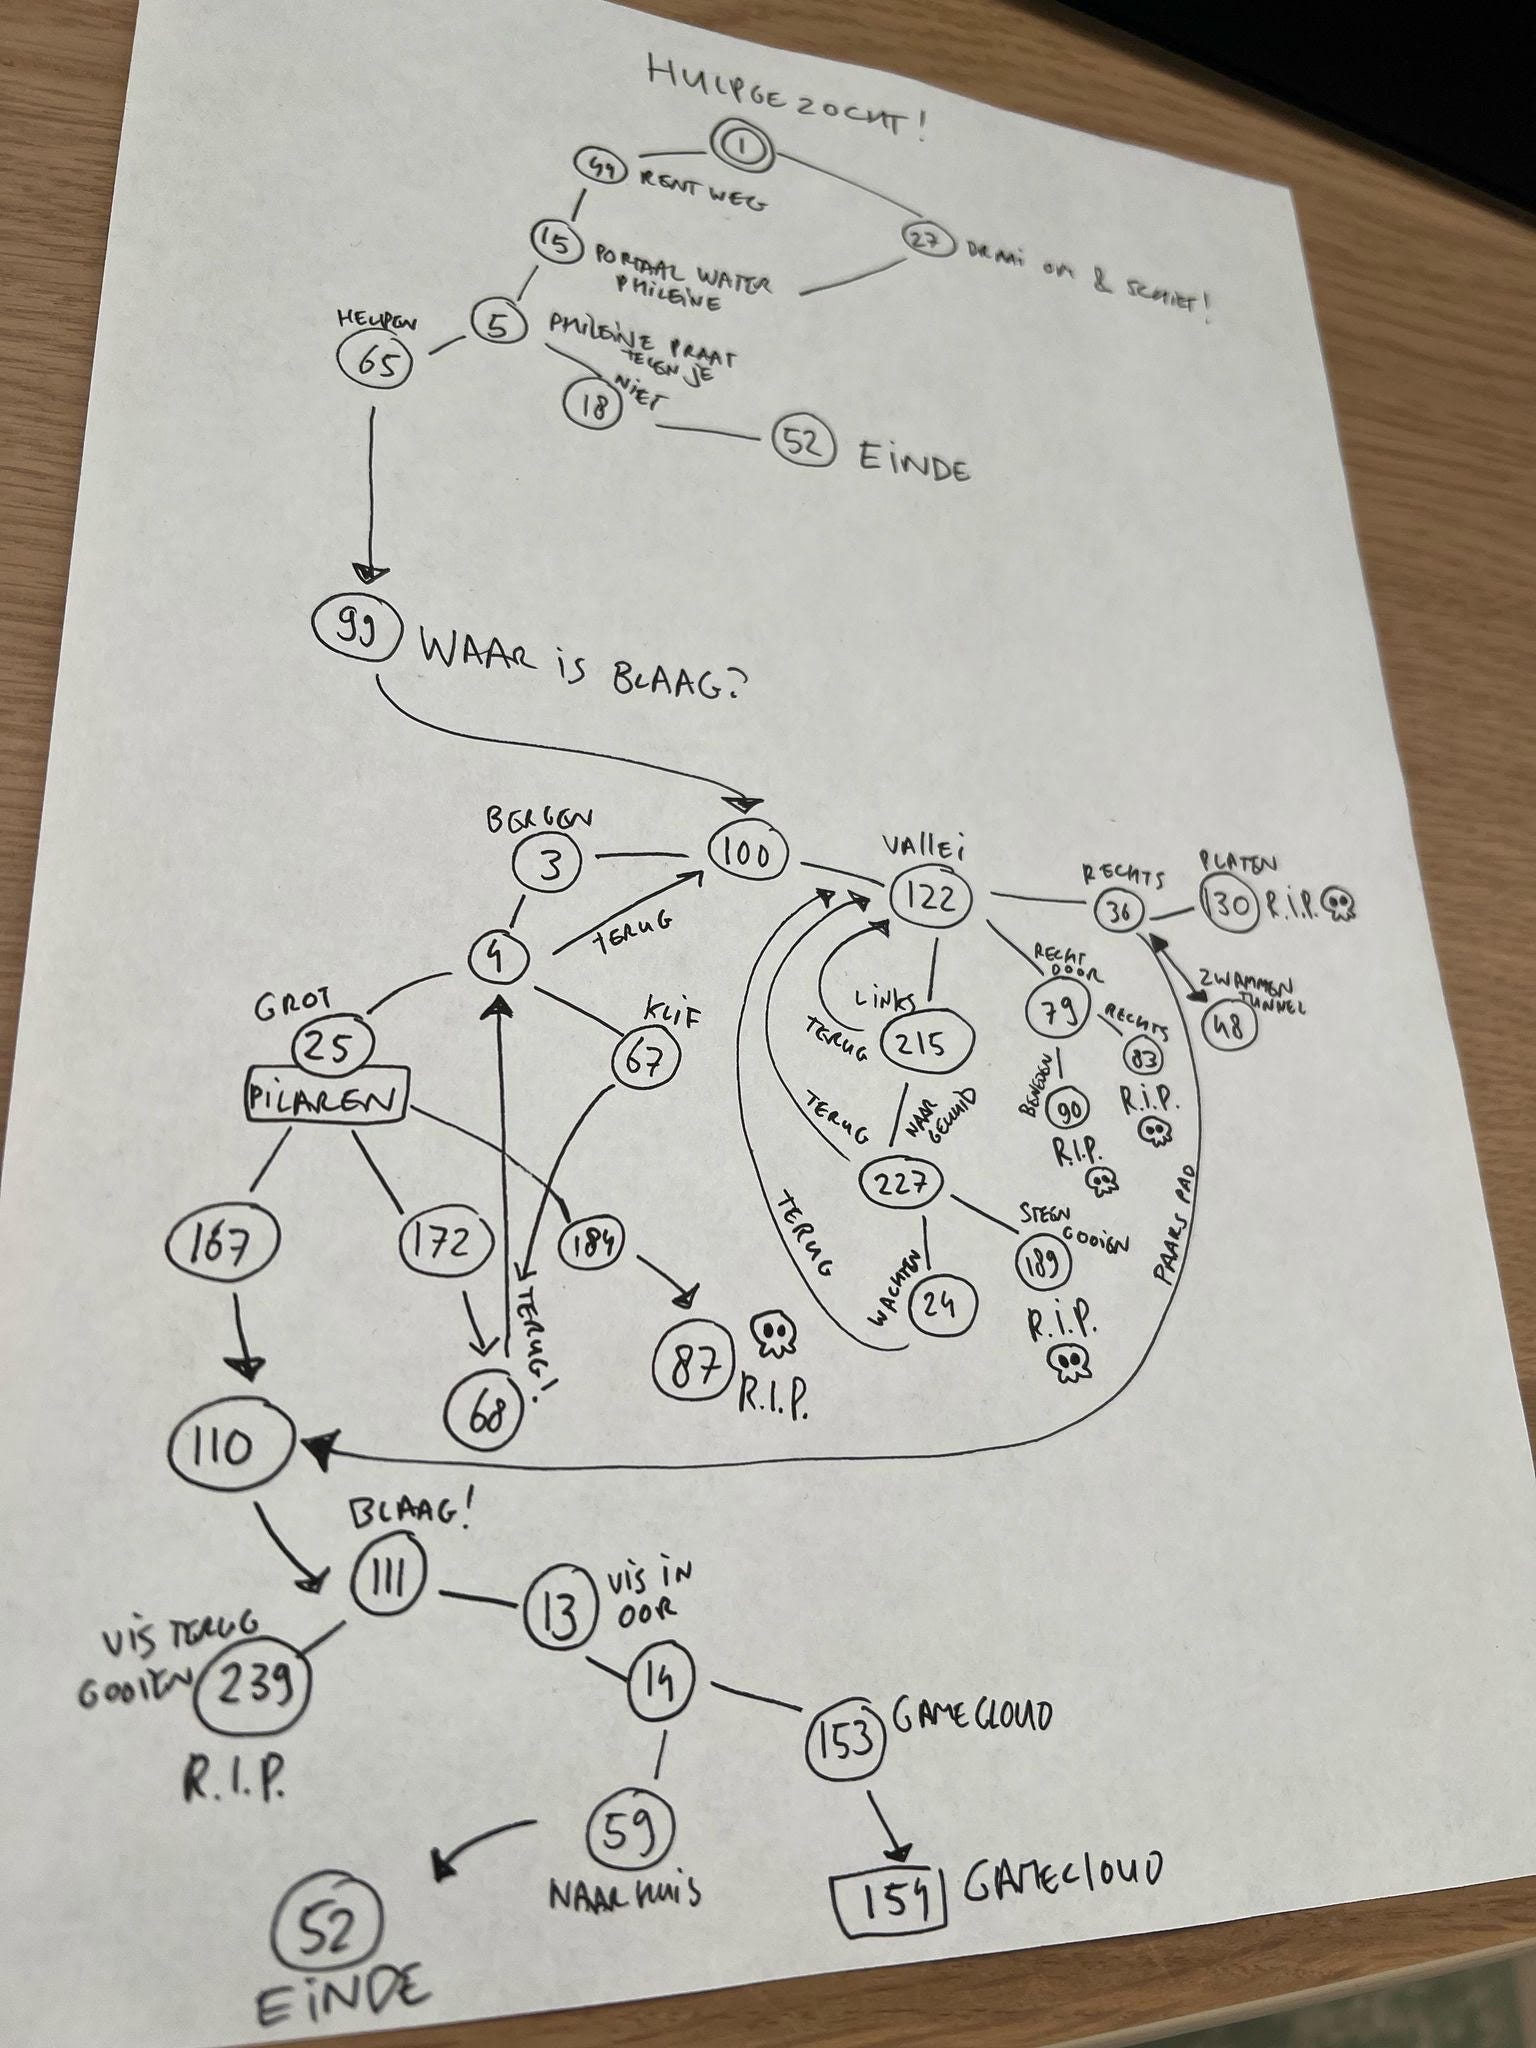 HULPGEZOCHT!
1
44 RENT WEG
27 DRAAI OM & SCHIET!
15 PORTAAL WATER
PHILEINE
HELPEN
65
5 PHILEINE PRAAT
TEGEN JE
NIET
18
52 EINDE
99 WAAR iS BLAAG?
BERGEN
3
100
VALLEi
122
RECHTS
36
PLATEN
130 R.i.P.
4
TERUG
GROT
25
PiLAREN
KLiF
67
LiNKS
TERUG
215
RECHT
DOOR
79
RECHTS
83
R.i.P.
ZWAMMEN
TUNNEL
48
BENEDEN
90
R.I.P.
TERUG
NAAR
GELUID
227
TERUG
STEEN
GOOIEN
189
R.i.P.
WACHTEN
24
PAARS PAD
167
172
184
TERUG!
87
R.I.P.
68
110
BLAAG!
111
13
ViS iN
OOR
ViS TERUG
GOOIEN
239
R.I.P.
14
153 GAMECLOUD
59
NAAR HUiS
154 GAMECLOUD
52
EiNDE